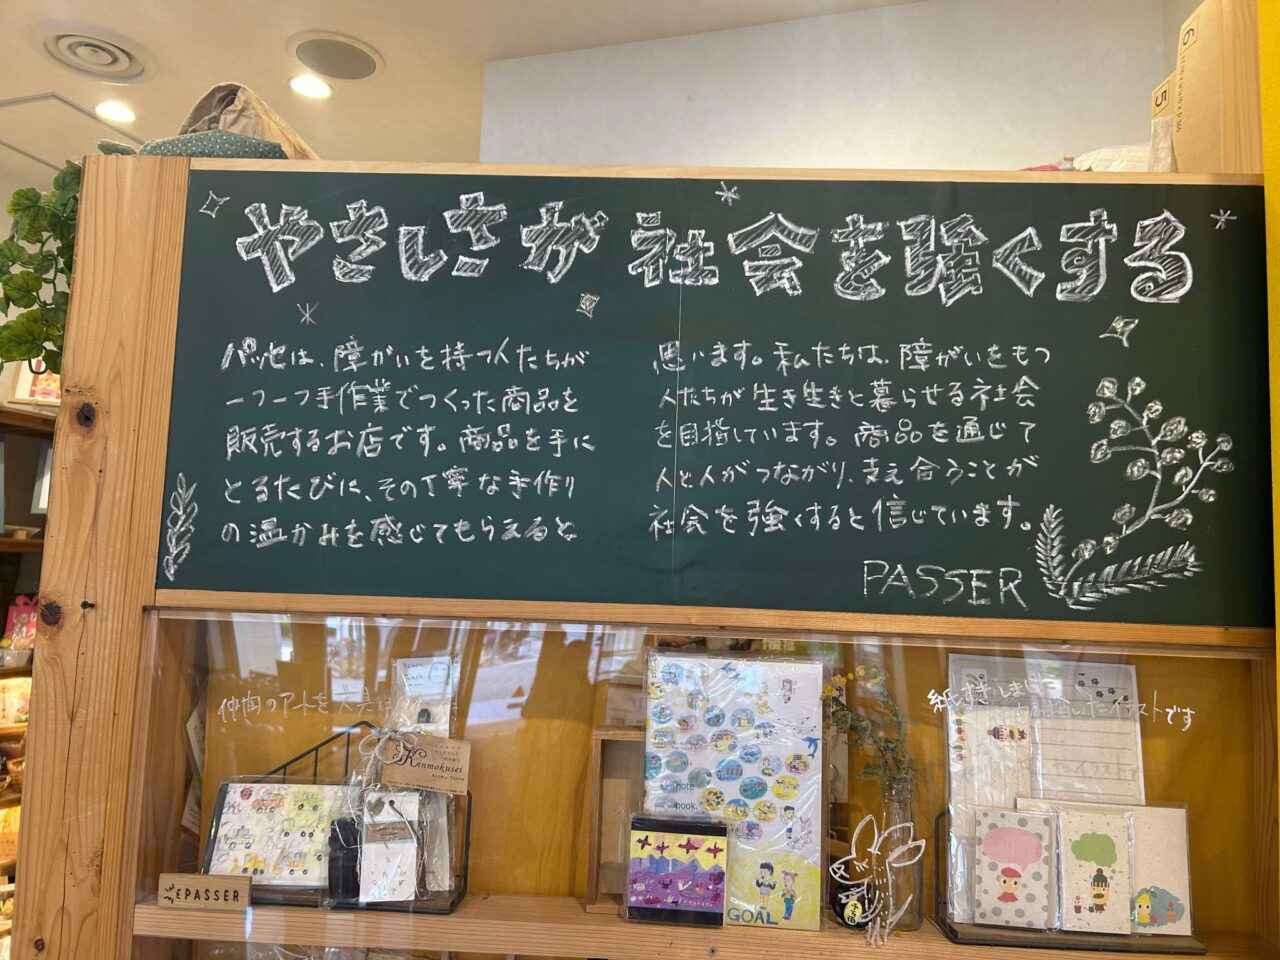 やさしさが社会を強くする
パッセは、障がいを持つ人たちが
一つ一つ手作業でつくった商品を
販売するお店です。商品を手に
とるたびに、その丁寧な手作り
の温かみを感じてもらえると
思います。私たちは、障がいをもつ
人たちが生き生きと暮らせる社会
を目指しています。商品を通じて
人と人がつながり、支え合うことが
社会を強くすると信じています。
PASSER
仲間のアートを
紙すきしました
イラストです
Kinmokusei
note
book.
GOAL
PASSER
6
5